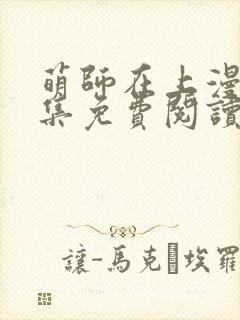 萌師在上漫
集免費閱讀
讓-馬克·埃羅